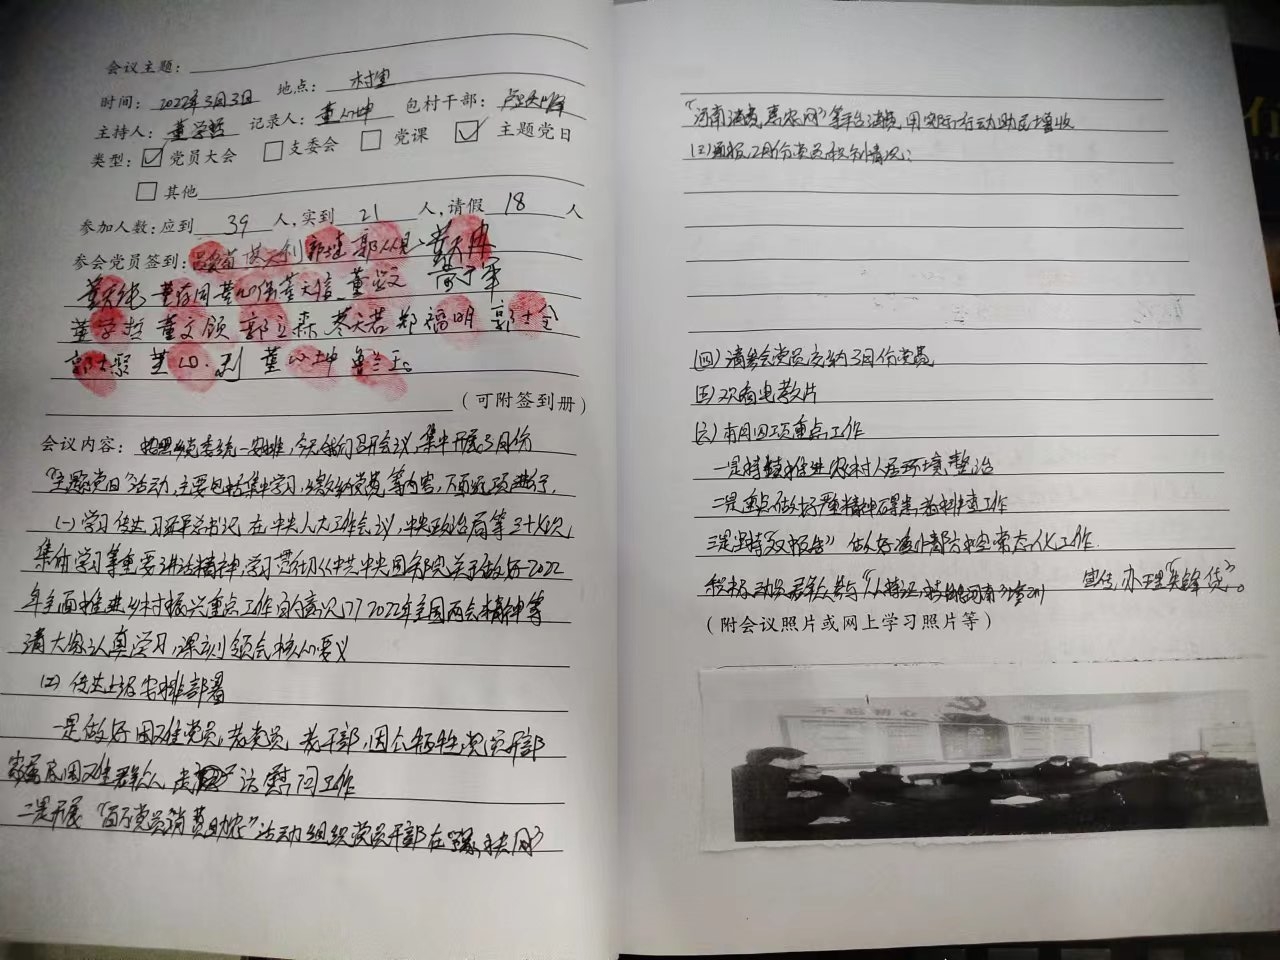 会议主题：
时间：2022年3月3日 地点：村室
主持人：董学哲 记录人：董心坤 包村干部：
类型：☑党员大会 □支委会 □党课 ☑主题党日
□其他
参加人数：应到 39 人，实到 21 人，请假 18 人
参会党员签到：
董文
董学哲 董文领 郭立森 郑福明
董心坤
（可附签到册）
会议内容：按照乡党委统一安排，今天我们召开会议，集中开展3月份
“主题党日”活动，主要包括集中学习，缴纳党费等内容，下面逐项进行。
（一）学习传达习近平总书记在中央人大工作会议，中央政治局第三十六次
集体学习等重要讲话精神，学习贯彻《中共中央国务院关于做好2022
年全面推进乡村振兴重点工作的意见》2022年全国两会精神等
请大家认真学习，深刻领会核心要义
（二）传达上级安排部署
一是做好困难党员，老党员，老干部，因公牺牲党员干部
家属及困难群众走访慰问工作
二是开展“百万党员消费助农”活动组织党员干部在
惠农网》等平台消费，用实际行动助民增收
（三）通报2月份党员积分情况：
（四）请参会党员交纳3月份党费
（五）观看电教片
（六）本月四项重点工作
一是持续推进农村人居环境整治
二是重点做好严重精神障碍患者排查工作
三是坚持“双报告”做好疫情防控常态化工作.
积极动员群众参与 宣传，办理“
（附会议照片或网上学习照片等）